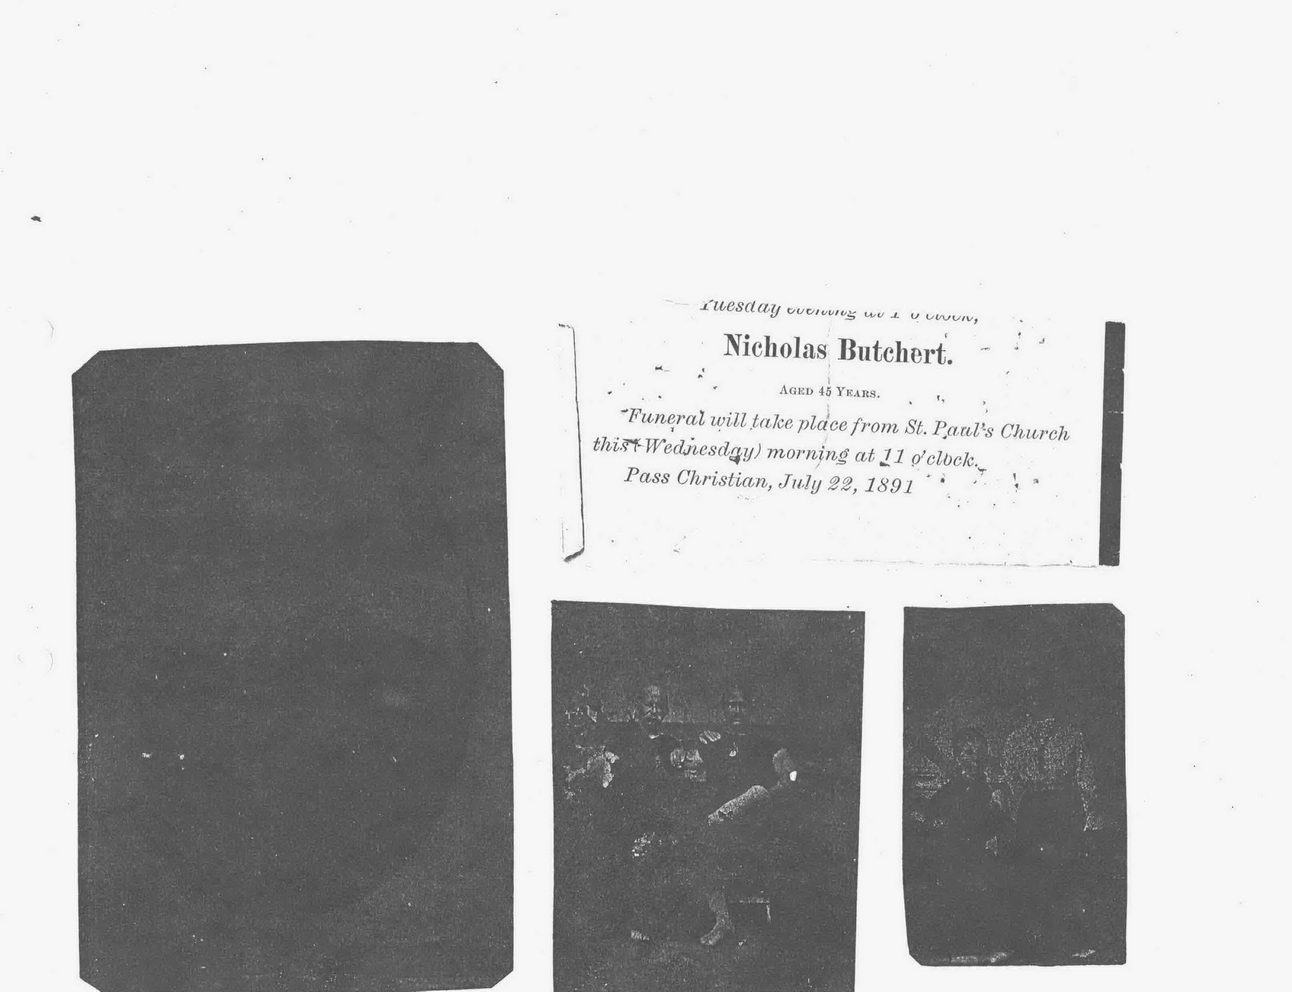 Tuesday evening at 1 o'clock,
Nicholas Butchert.
AGED 45 YEARS.
Funeral will take place from St. Paul's Church
this (Wednesday) morning at 11 o'clock.
Pass Christian, July 22, 1891